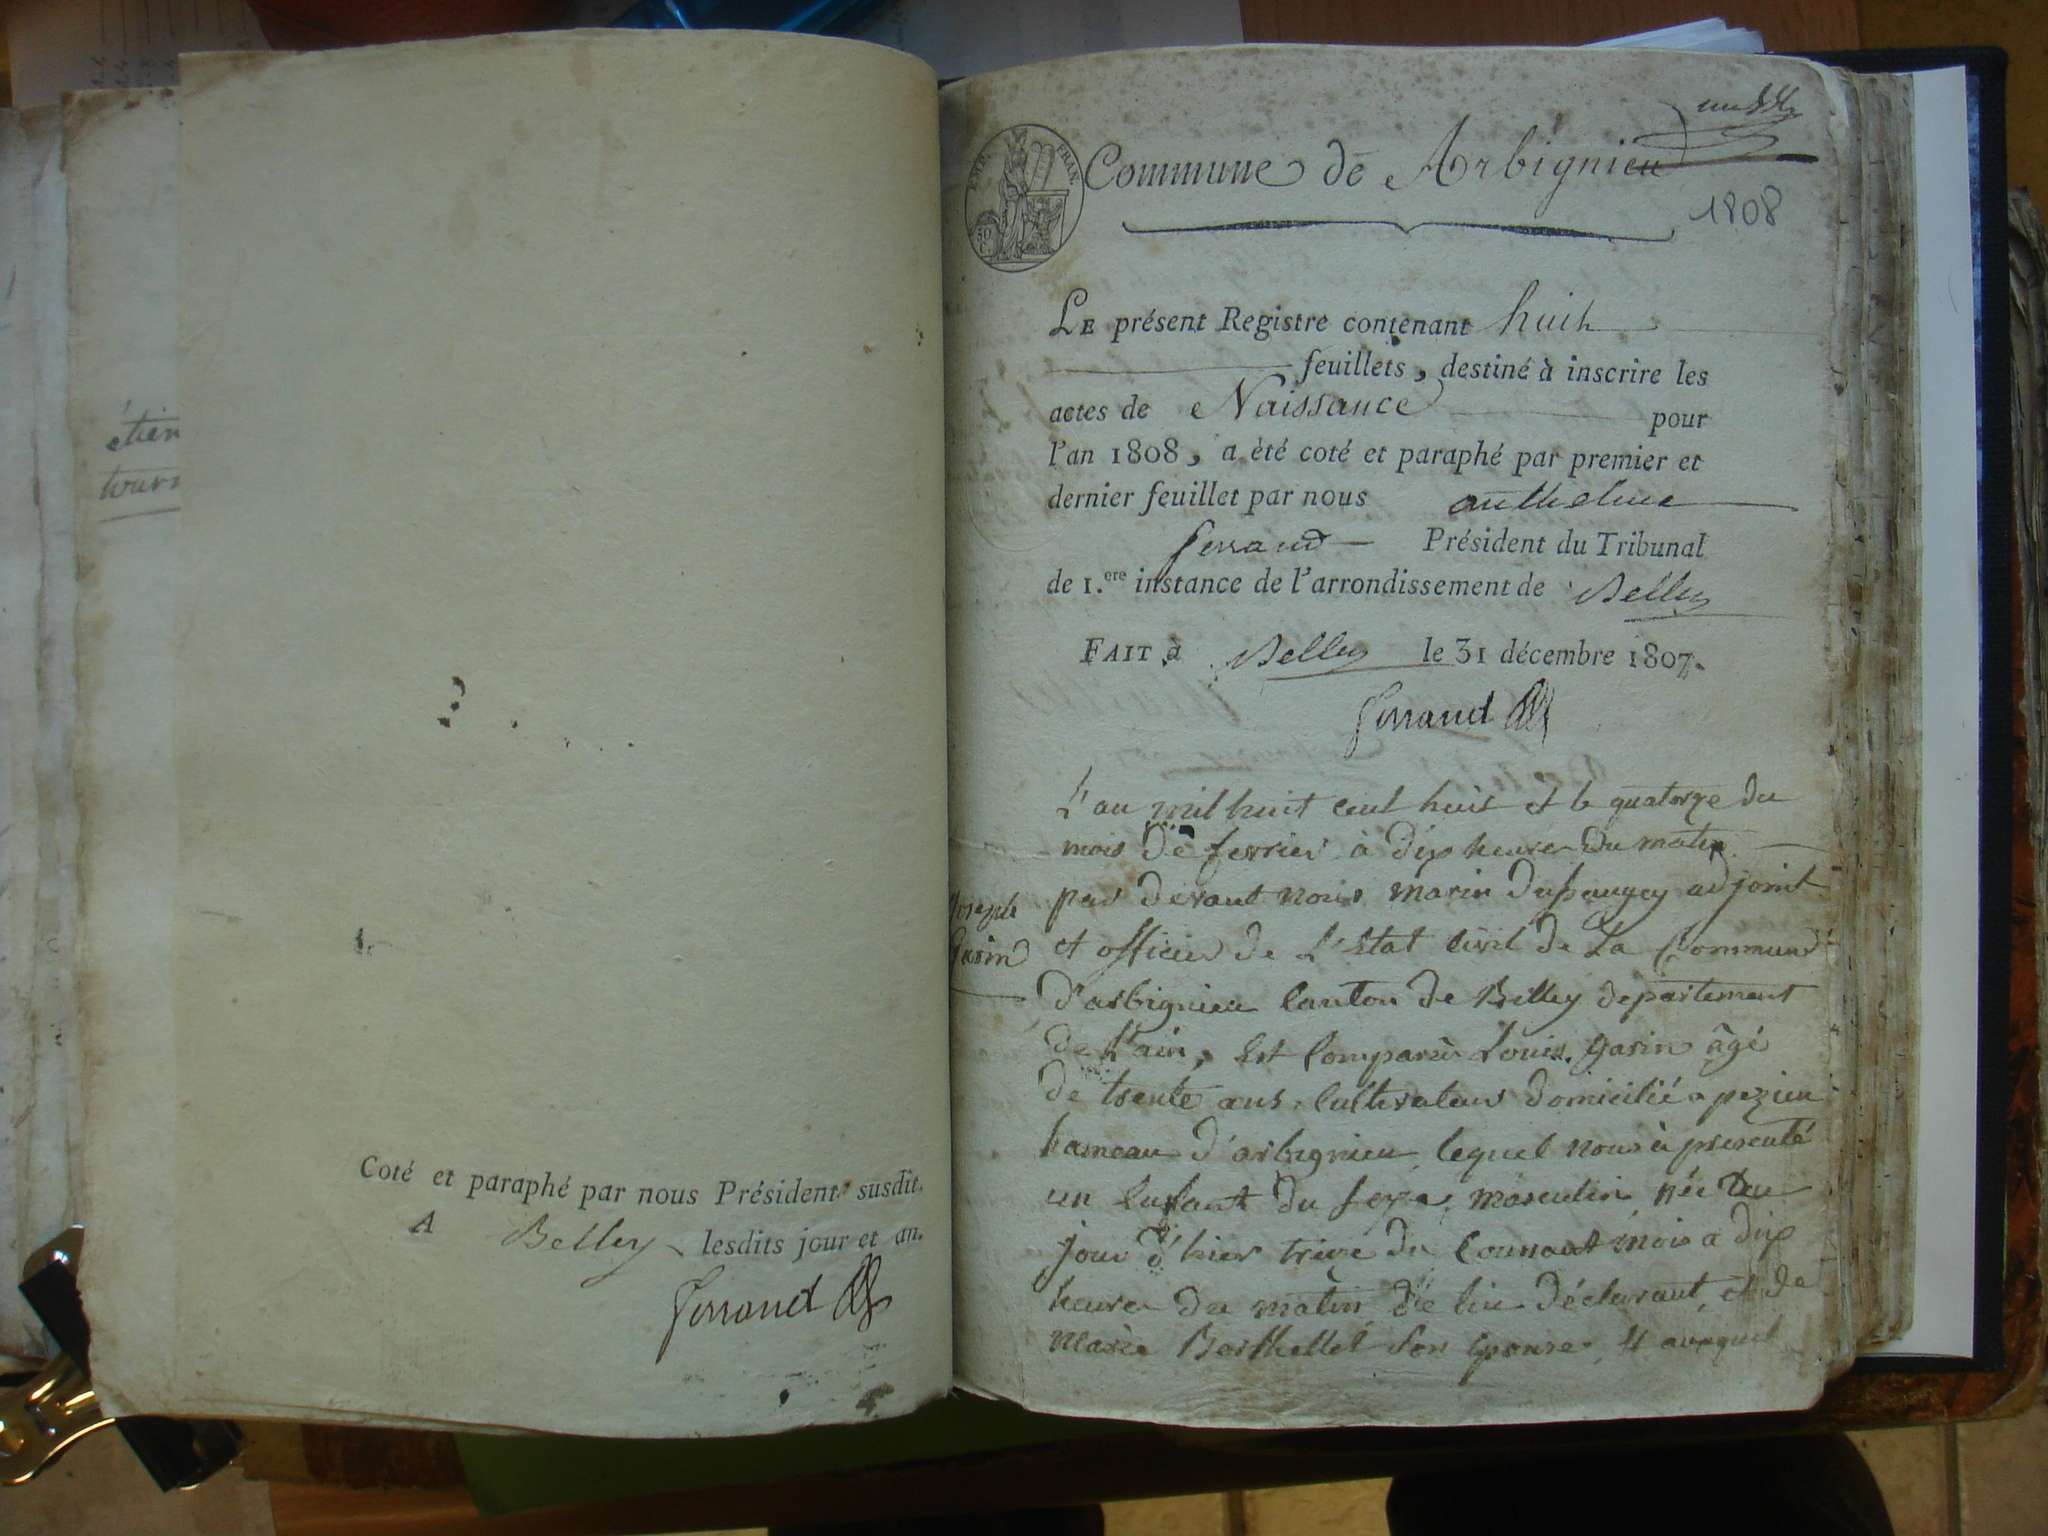 étien
Coté et paraphé par nous Président susdit.
A Belley lesdits jour et an.
Ferrand
Commune de Arbignieu
1808
EMP. FRAN.
50
C.
LE présent Registre contenant huit
feuillets, destiné à inscrire les
actes de Naissance pour
l'an 1808, a été coté et paraphé par premier et
dernier feuillet par nous anthelme
ferrand Président du Tribunal
de 1.ere instance de l'arrondissement de Belley
FAIT à Belley le 31 décembre 1807.
Ferrand
Joseph
Garin
L'an mil huit cent huit et le quatorze du
mois de fevrier à dix heures du matin
par devant nous marin Dupaugey adjoint
et officier de L'Etat Civil de La Commune
d'arbignieu Canton de Belley departement
de L'ain, Est Comparu Louis garin âgé
de trente ans, Cultivateur domicilié a pezieu
hameau d'arbignieu, lequel nous à presenté
un Enfant du sexe masculin née du
jour d'hier treize du Courant mois a dix
heures du matin de lui déclarant et de
Marie Berthellet son Epouse, et auquel